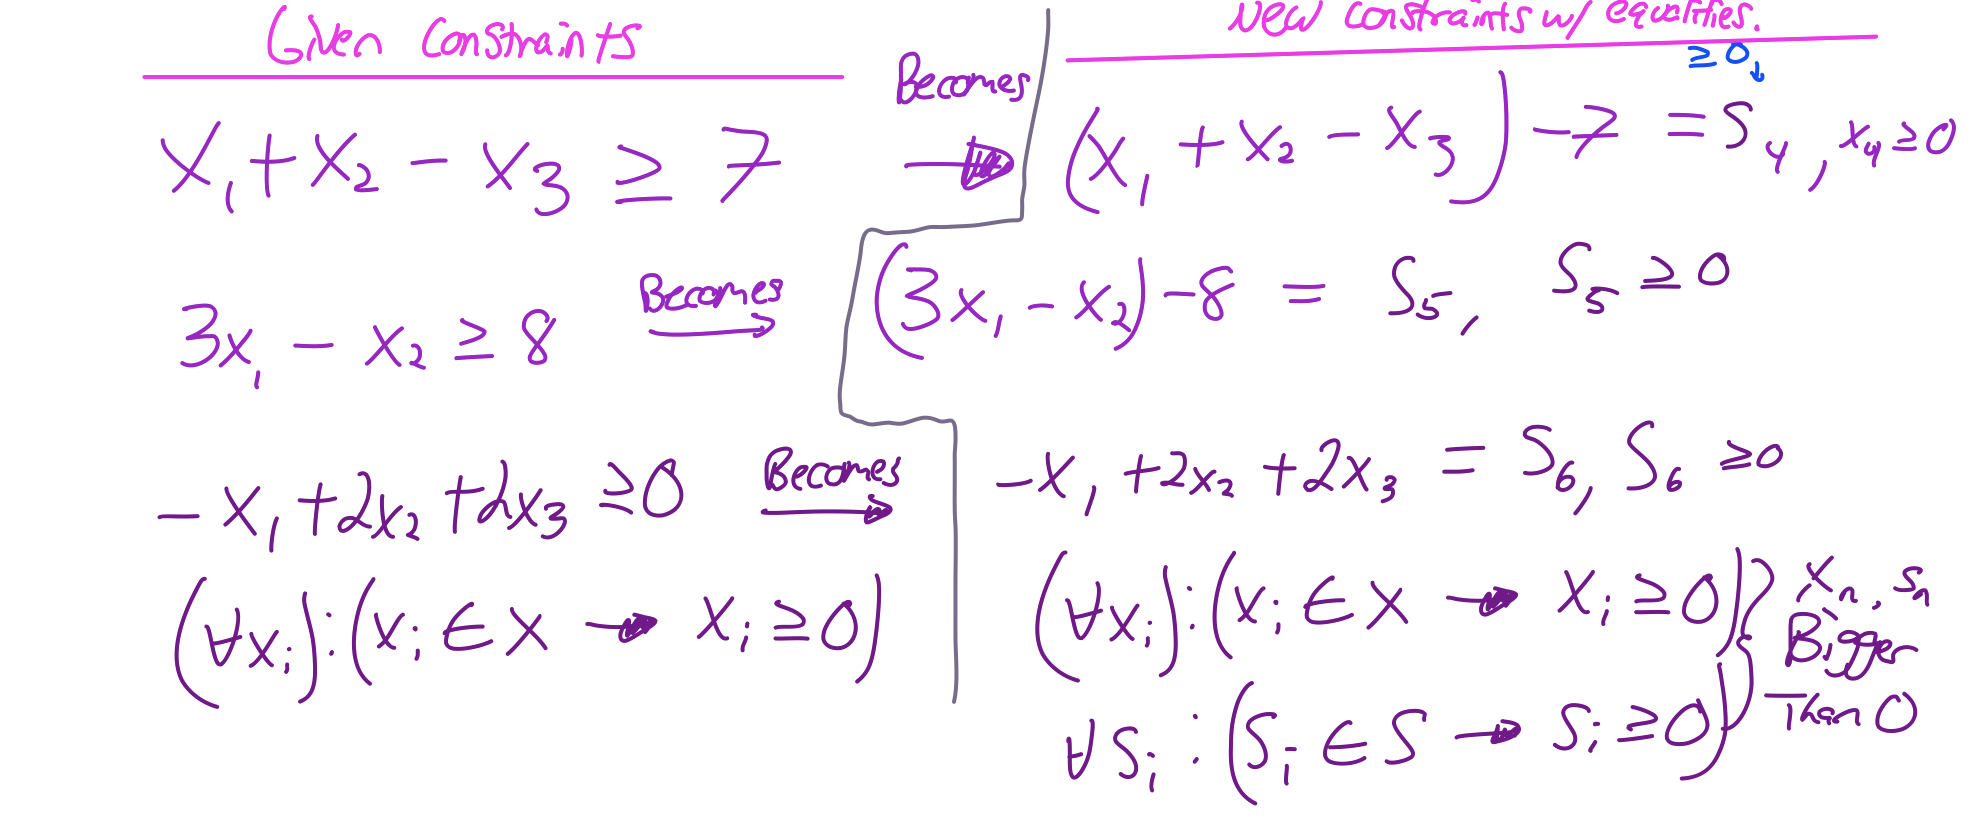 Given Constraints
New constraints w/ equalities.
≥ 0↓
x₁ + x₂ - x₃ ≥ 7 Becomes → (x₁ + x₂ - x₃) - 7 = S₄, x₄ ≥ 0
3x₁ - x₂ ≥ 8 Becomes → (3x₁ - x₂) - 8 = S₅, S₅ ≥ 0
-x₁ + 2x₂ + 2x₃ ≥ 0 Becomes → -x₁ + 2x₂ + 2x₃ = S₆, S₆ ≥ 0
(∀xᵢ):(xᵢ ∈ X → xᵢ ≥ 0)
(∀xᵢ):(xᵢ ∈ X → xᵢ ≥ 0)
∀Sᵢ:(Sᵢ ∈ S → Sᵢ ≥ 0)
xₙ, sₙ
Bigger
Than 0